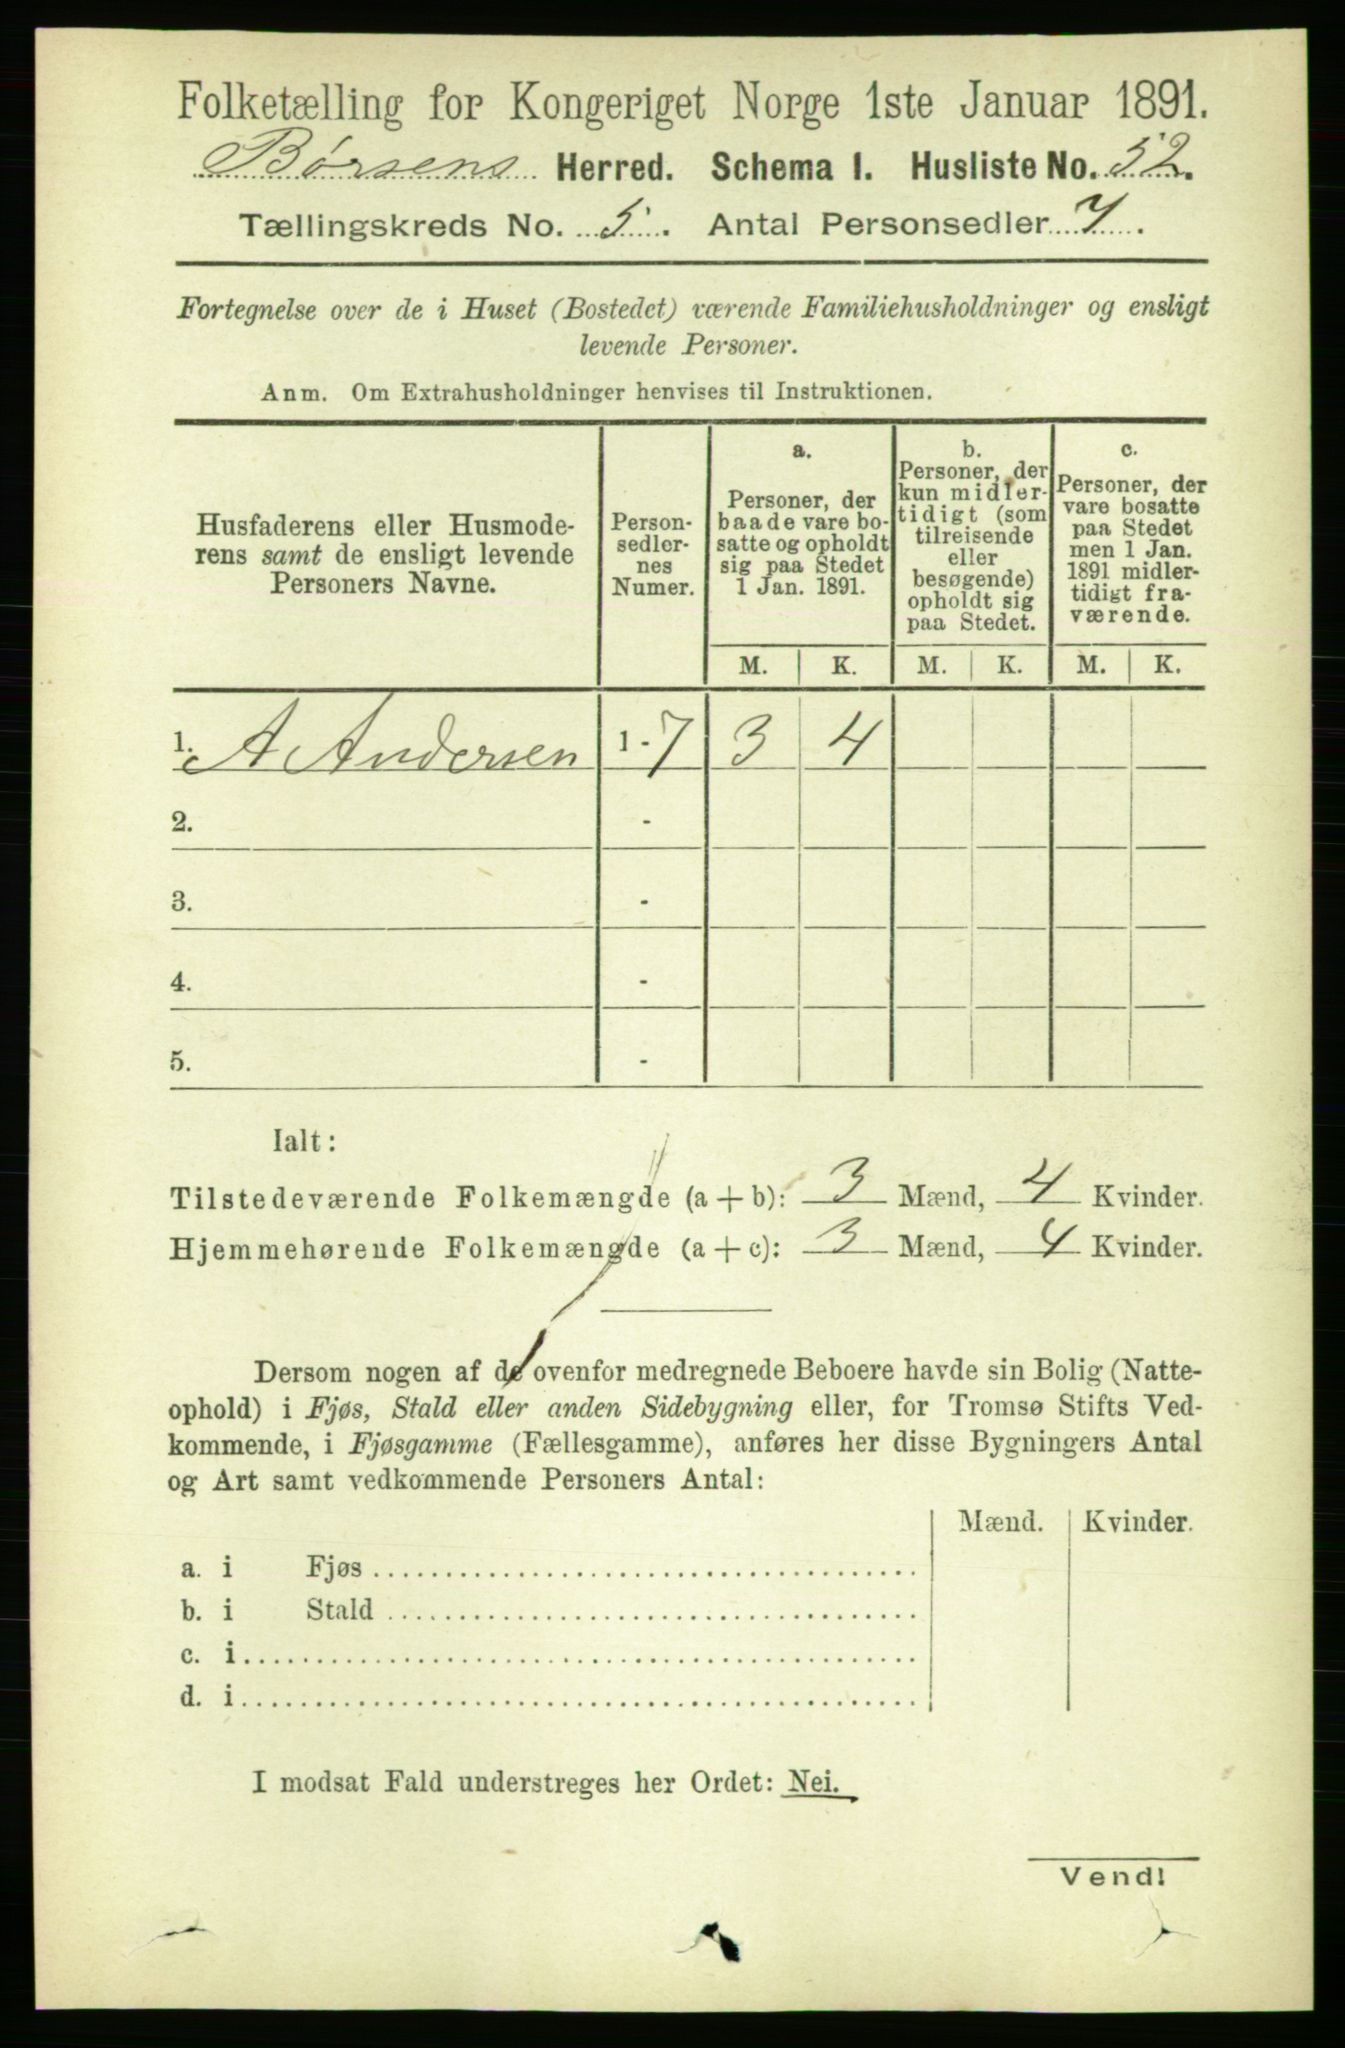 Folketælling for Kongeriget Norge 1ste Januar 1891.
Børsens Herred. Schema I. Husliste No. 52.
Tællingskreds No. 5. Antal Personsedler 7.
Fortegnelse over de i Huset (Bostedet) værende Familiehusholdninger og ensligt
levende Personer.
Anm. Om Extrahusholdninger henvises til Instruktionen.
Husfaderens eller Husmode-
rens samt de ensligt levende
Personers Navne.
Person-
sedler-
nes
Numer.
a.
Personer, der
baade vare bo-
satte og opholdt
sig paa Stedet
1 Jan. 1891.
b.
Personer, der
kun midler-
tidigt (som
tilreisende
eller
besøgende)
opholdt sig
paa Stedet.
c.
Personer, der
vare bosatte
paa Stedet
men 1 Jan.
1891 midler-
tidigt fra-
værende.
M. K. M. K. M. K.
1. A Andersen 1-7 3 4
2. -
3. -
4. -
5. -
Ialt:
Tilstedeværende Folkemængde (a + b): 3 Mænd, 4 Kvinder.
Hjemmehørende Folkemængde (a + c): 3 Mænd, 4 Kvinder.
Dersom nogen af de ovenfor medregnede Beboere havde sin Bolig (Natte-
ophold) i Fjøs, Stald eller anden Sidebygning eller, for Tromsø Stifts Ved-
kommende, i Fjøsgamme (Fællesgamme), anføres her disse Bygningers Antal
og Art samt vedkommende Personers Antal:
Mænd. Kvinder.
a. i Fjøs
b. i Stald
c. i
d. i
I modsat Fald understreges her Ordet: Nei.
Vend!